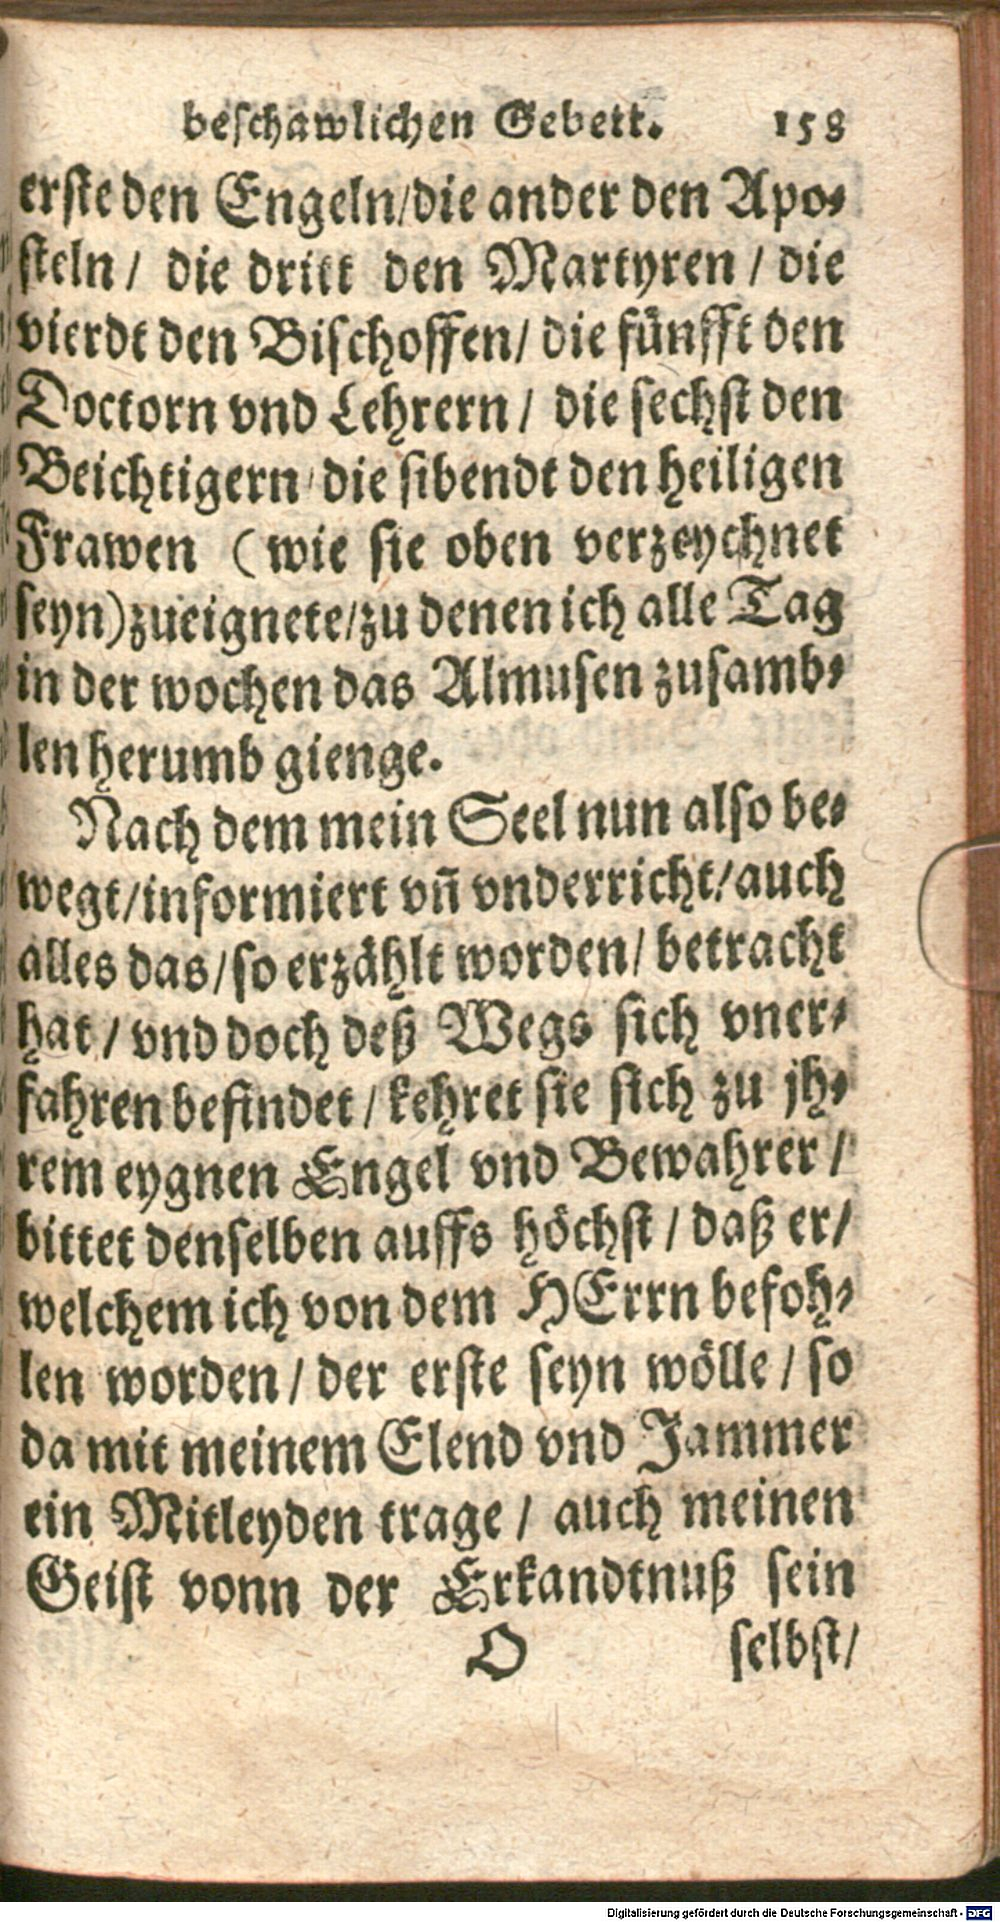 beschawlichen Gebett. 158
erste den Engeln/die ander den Apo-
steln/ die dritt den Martyren / die
vierdt den Bischoffen/ die fünfft den
Doctorn vnd Lehrern/ die sechst den
Beichtigern/ die sibendt den heiligen
Frawen (wie sie oben verzeychnet
seyn) zueignete/zu denen ich alle Tag
in der wochen das Almusen zusamb-
len herumb gienge.
Nach dem mein Seel nun also be-
wegt/informiert vñ vnderricht/auch
alles das/so erzählt worden/ betracht
hat / vnd doch deß Wegs sich vner-
fahren befindet / kehret sie sich zu jh-
rem eygnen Engel vnd Bewahrer /
bittet denselben auffs höchst / daß er/
welchem ich von dem HErrn befoh-
len worden / der erste seyn wölle / so
da mit meinem Elend vnd Jammer
ein Mitleyden trage / auch meinen
Geist vonn der Erkandtnuß sein
O selbst/
Digitalisierung gefördert durch die Deutsche Forschungsgemeinschaft - DFG